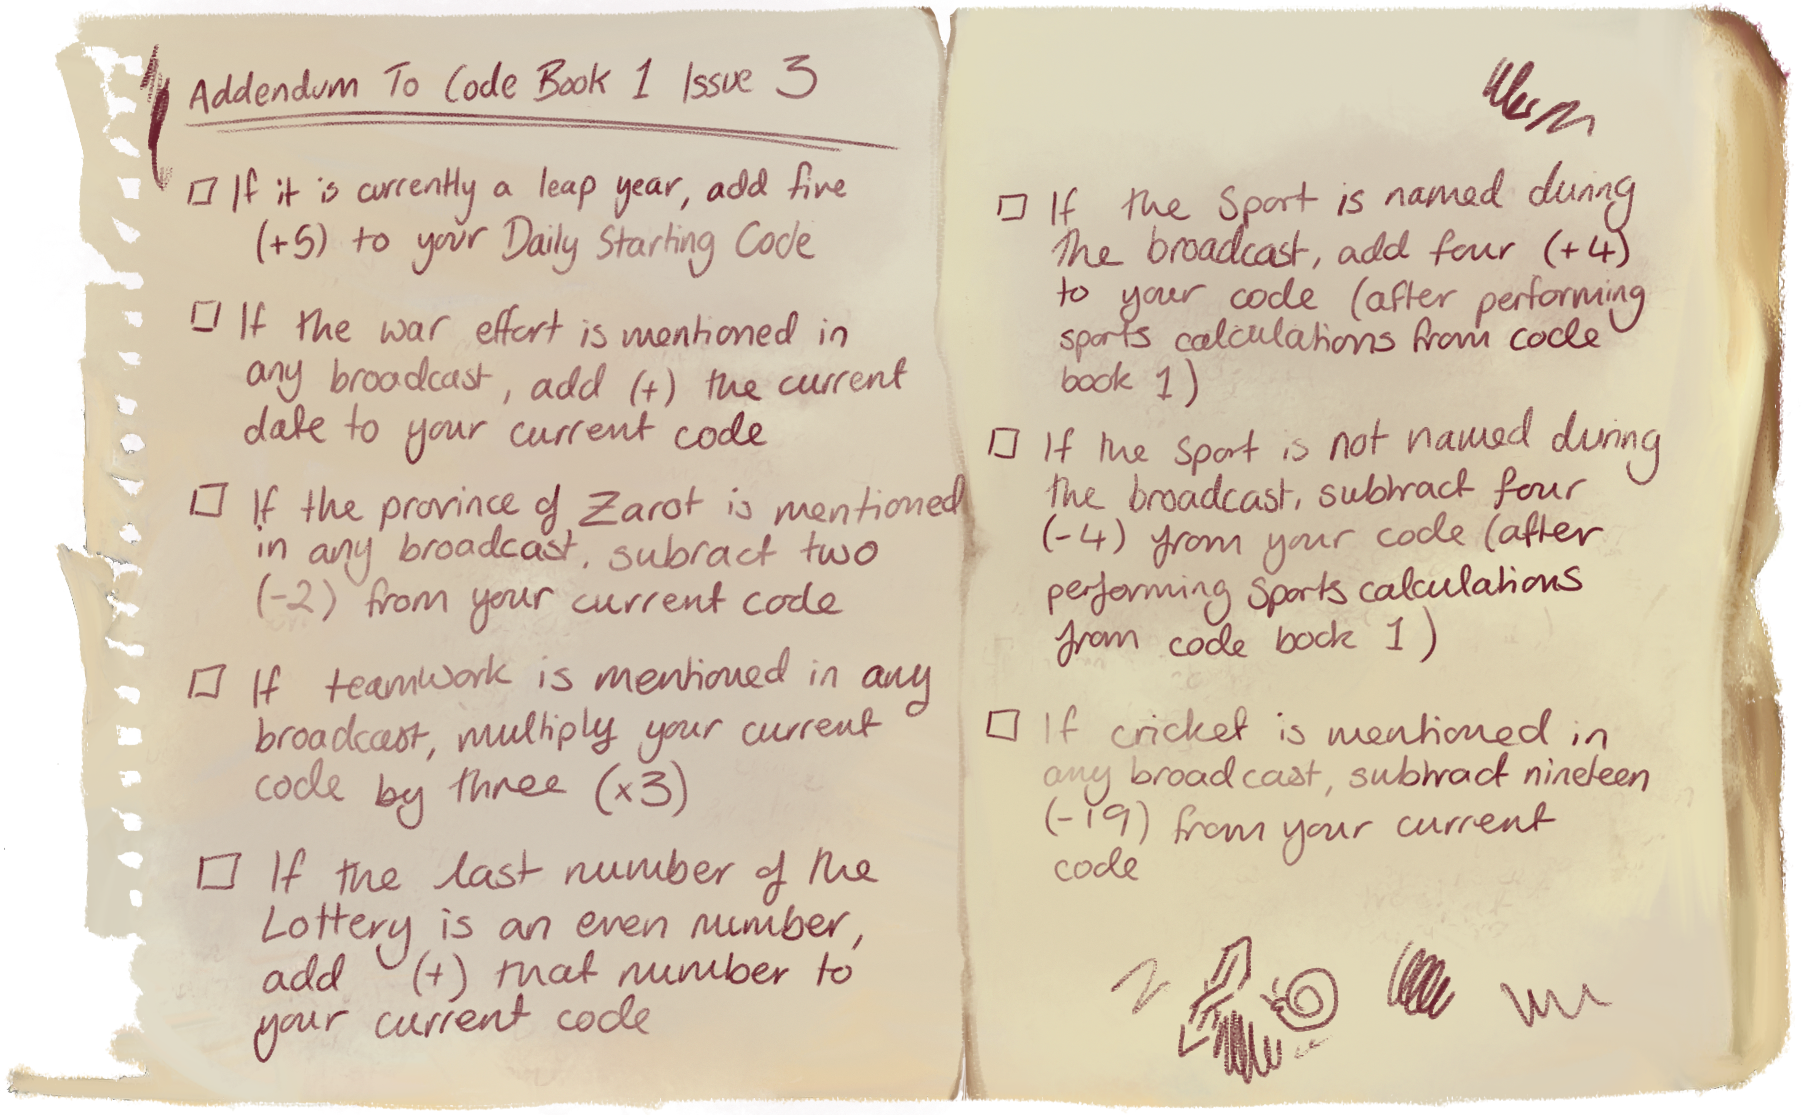 Addendum To Code Book 1 Issue 3
If it is currently a leap year, add five
(+5) to your Daily Starting Code
If the war effort is mentioned in
any broadcast, add (+) the current
date to your current code
If the province of Zarot is mentioned
in any broadcast, subract two
(-2) from your current code
If teamwork is mentioned in any
broadcast, multiply your current
code by three (x3)
If the last number of the
Lottery is an even number,
add (+) that number to
your current code
If the Sport is named during
the broadcast, add four (+4)
to your code (after performing
sports calculations from code
book 1)
If the sport is not named during
the broadcast, subtract four
(-4) from your code (after
performing sports calculations
from code book 1)
If cricket is mentioned in
any broadcast, subtract nineteen
(-19) from your current
code